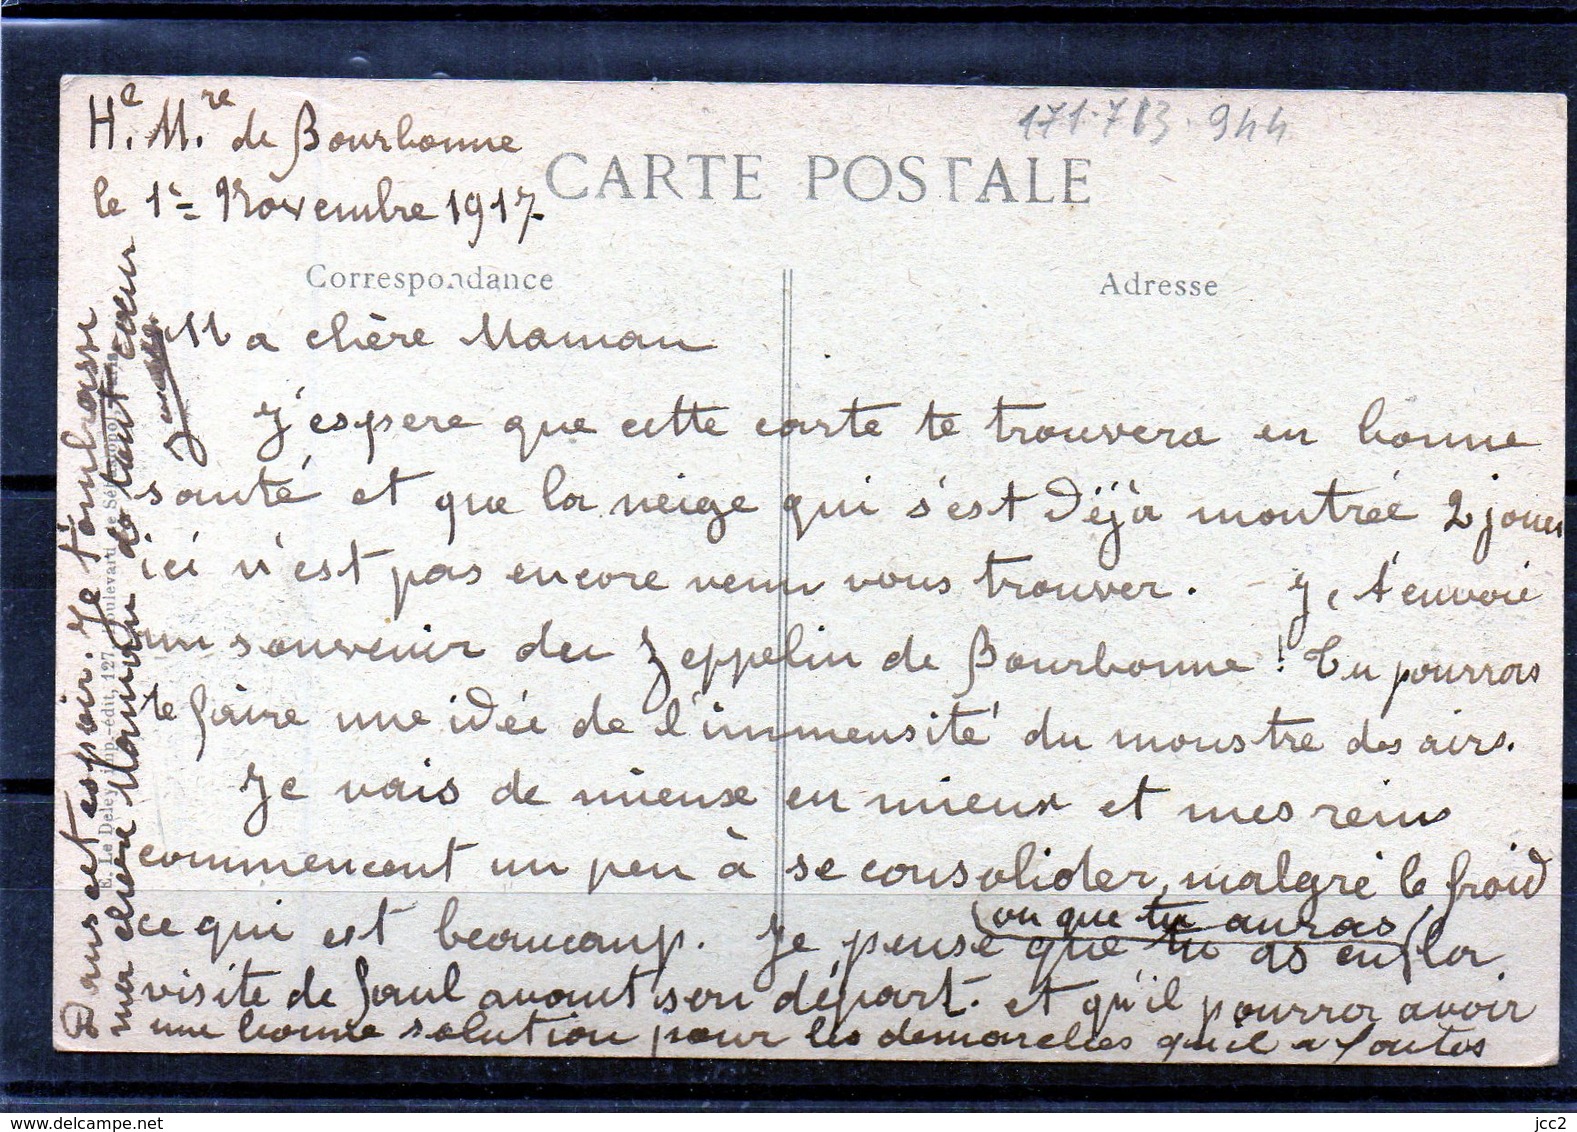 H.e M.re de Bourbonne
le 1er Novembre 1917.
171.713.944
CARTE POSTALE
Correspondance
Adresse
Ma chère Maman
J'espere que cette carte te trouvera en bonne
santé et que la neige qui s'est déjà montrée 2 jours
ici n'est pas encore venu vous trouver. - J, t'envoie
un souvenir du Zeppelin de Bourbonne! Tu pourras
te faire une idée de l'immensité du monstre des airs.
Je vais de mieux en mieux et mes reins
commencent un peu à se consolider, malgré le froid
ce qui est beaucoup. Je pense que tu as eu (ou que tu auras) la
visite de Paul avant son départ. et qu'il pourra avoir
une bonne solution pour les demarches qu'il a faites
Dans cet espoir. Je t'embrasse
ma chère Maman de tout cœur
E. Le Deley, imp.-édit., 127, boulevard de Sébastopol, Paris
delcampe.net
jcc2